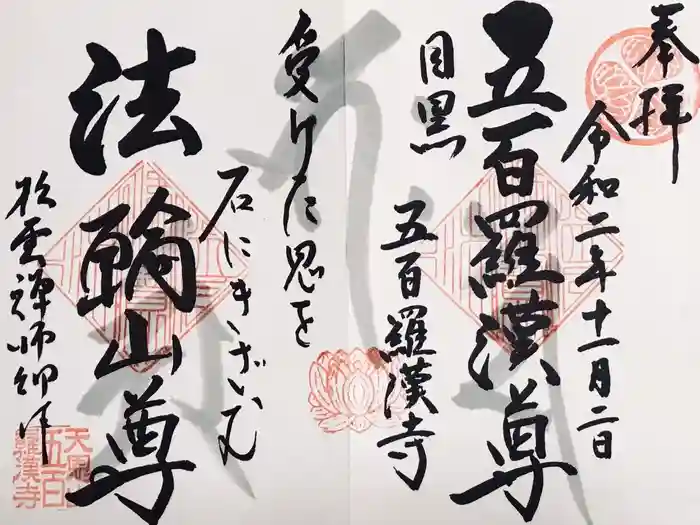 奉拝
令和二年十一月二日
五百羅漢尊
目黒
五百羅漢寺
受けた恩を
石にきざいむ
法輪山尊
松雲禅師御作
天恩山
五百
羅漢寺